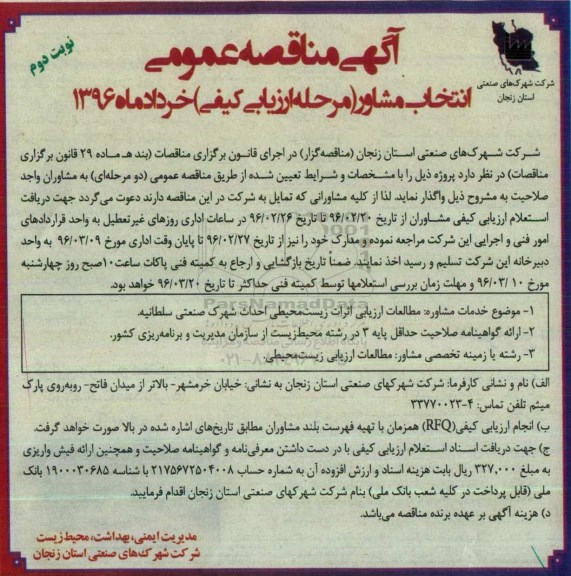 آگهی مناقصه عمومی
نوبت دوم
شرکت شهرک‌های صنعتی
استان زنجان
انتخاب مشاور(مرحله ارزیابی کیفی)خرداد ماه ۱۳۹۶
شرکت شهرک‌های صنعتی استان زنجان (مناقصه‌گزار) در اجرای قانون برگزاری مناقصات (بند هـ ماده ۲۹ قانون برگزاری
مناقصات) در نظر دارد پروژه ذیل را با مشخصات و شرایط تعیین شده از طریق مناقصه عمومی (دو مرحله‌ای) به مشاوران واجد
صلاحیت به مشروح ذیل واگذار نماید. لذا از کلیه مشاورانی که تمایل به شرکت در این مناقصه دارند دعوت می‌گردد جهت دریافت
استعلام ارزیابی کیفی مشاوران از تاریخ ۹۶/۰۲/۲۰ تا تاریخ ۹۶/۰۲/۲۶ در ساعات اداری روزهای غیرتعطیل به واحد قراردادهای
امور فنی و اجرایی این شرکت مراجعه نموده و مدارک خود را نیز از تاریخ ۹۶/۰۲/۲۷ تا پایان وقت اداری مورخ ۹۶/۰۳/۰۹ به واحد
دبیرخانه این شرکت تسلیم و رسید اخذ نمایند. ضمناً تاریخ بازگشایی و ارجاع به کمیته فنی پاکات ساعت۱۰صبح روز چهارشنبه
مورخ ۹۶/۰۳/۱۰ و مهلت زمان بررسی استعلامها توسط کمیته فنی حداکثر تا تاریخ ۹۶/۰۳/۲۰ خواهد بود.
۱- موضوع خدمات مشاوره: مطالعات ارزیابی اثرات زیست‌محیطی احداث شهرک صنعتی سلطانیه.
۲- ارائه گواهینامه صلاحیت حداقل پایه ۳ در رشته محیط‌زیست از سازمان مدیریت و برنامه‌ریزی کشور.
۳- رشته یا زمینه تخصصی مشاور: مطالعات ارزیابی زیست‌محیطی
الف) نام و نشانی کارفرما: شرکت شهرکهای صنعتی استان زنجان به نشانی: خیابان خرمشهر- بالاتر از میدان فاتح- روبه‌روی پارک
میثم تلفن تماس: ۴-۳۳۷۷۰۰۲۳
ب) انجام ارزیابی کیفی(RFQ) همزمان با تهیه فهرست بلند مشاوران مطابق تاریخ‌های اشاره شده در بالا صورت خواهد گرفت.
ج) جهت دریافت اسناد استعلام ارزیابی کیفی با در دست داشتن معرفی‌نامه و گواهینامه صلاحیت و همچنین ارائه فیش واریزی
به مبلغ ۳۲۷,۰۰۰ ریال بابت هزینه اسناد و ارزش افزوده آن به شماره حساب ۲۱۷۵۶۷۲۵۰۴۰۰۸ با شناسه ۱۹۰۰۰۳۰۶۸۵ بانک
ملی (قابل پرداخت در کلیه شعب بانک ملی) بنام شرکت شهرکهای صنعتی استان زنجان اقدام فرمایید.
د) هزینه آگهی بر عهده برنده مناقصه می‌باشد.
مدیریت ایمنی، بهداشت، محیط زیست
شرکت شهرک‌های صنعتی استان زنجان
ParsNamadData